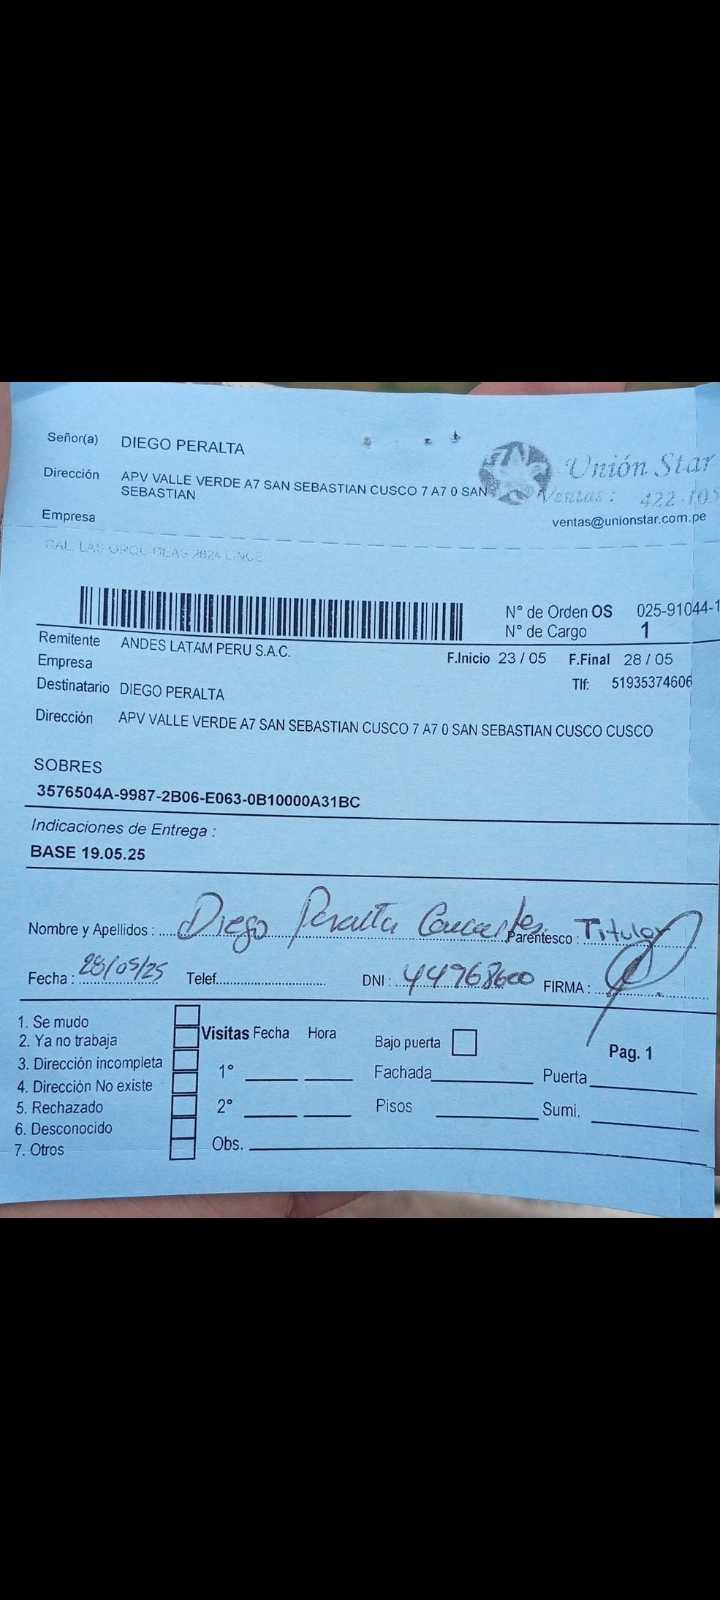 Señor(a) DIEGO PERALTA
Dirección APV VALLE VERDE A7 SAN SEBASTIAN CUSCO 7 A7 0 SAN
SEBASTIAN
Unión Star
Ventas: 422-105
Empresa
ventas@unionstar.com.pe
2624 LINCE
N° de Orden OS 025-91044-1
N° de Cargo 1
Remitente ANDES LATAM PERU S.A.C.
Empresa
F.Inicio 23 / 05 F.Final 28 / 05
Destinatario DIEGO PERALTA
Tlf: 51935374606
Dirección APV VALLE VERDE A7 SAN SEBASTIAN CUSCO 7 A7 0 SAN SEBASTIAN CUSCO CUSCO
SOBRES
3576504A-9987-2B06-E063-0B10000A31BC
Indicaciones de Entrega :
BASE 19.05.25
Nombre y Apellidos : Diego Peralta Parentesco : Titular
Fecha : 28/05/25 Telef. DNI : 44968600 FIRMA :
1. Se mudo
2. Ya no trabaja
3. Dirección incompleta
4. Dirección No existe
5. Rechazado
6. Desconocido
7. Otros
Visitas Fecha Hora
1°
2°
Obs.
Bajo puerta
Fachada Puerta
Pisos Sumi.
Pag. 1